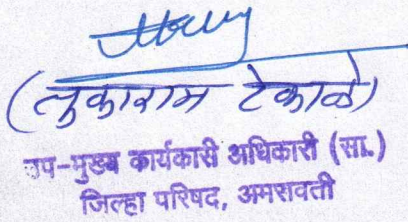 (तुकाराम टेकाळे)
उप-मुख्य कार्यकारी अधिकारी (सा.)
जिल्हा परिषद, अमरावती